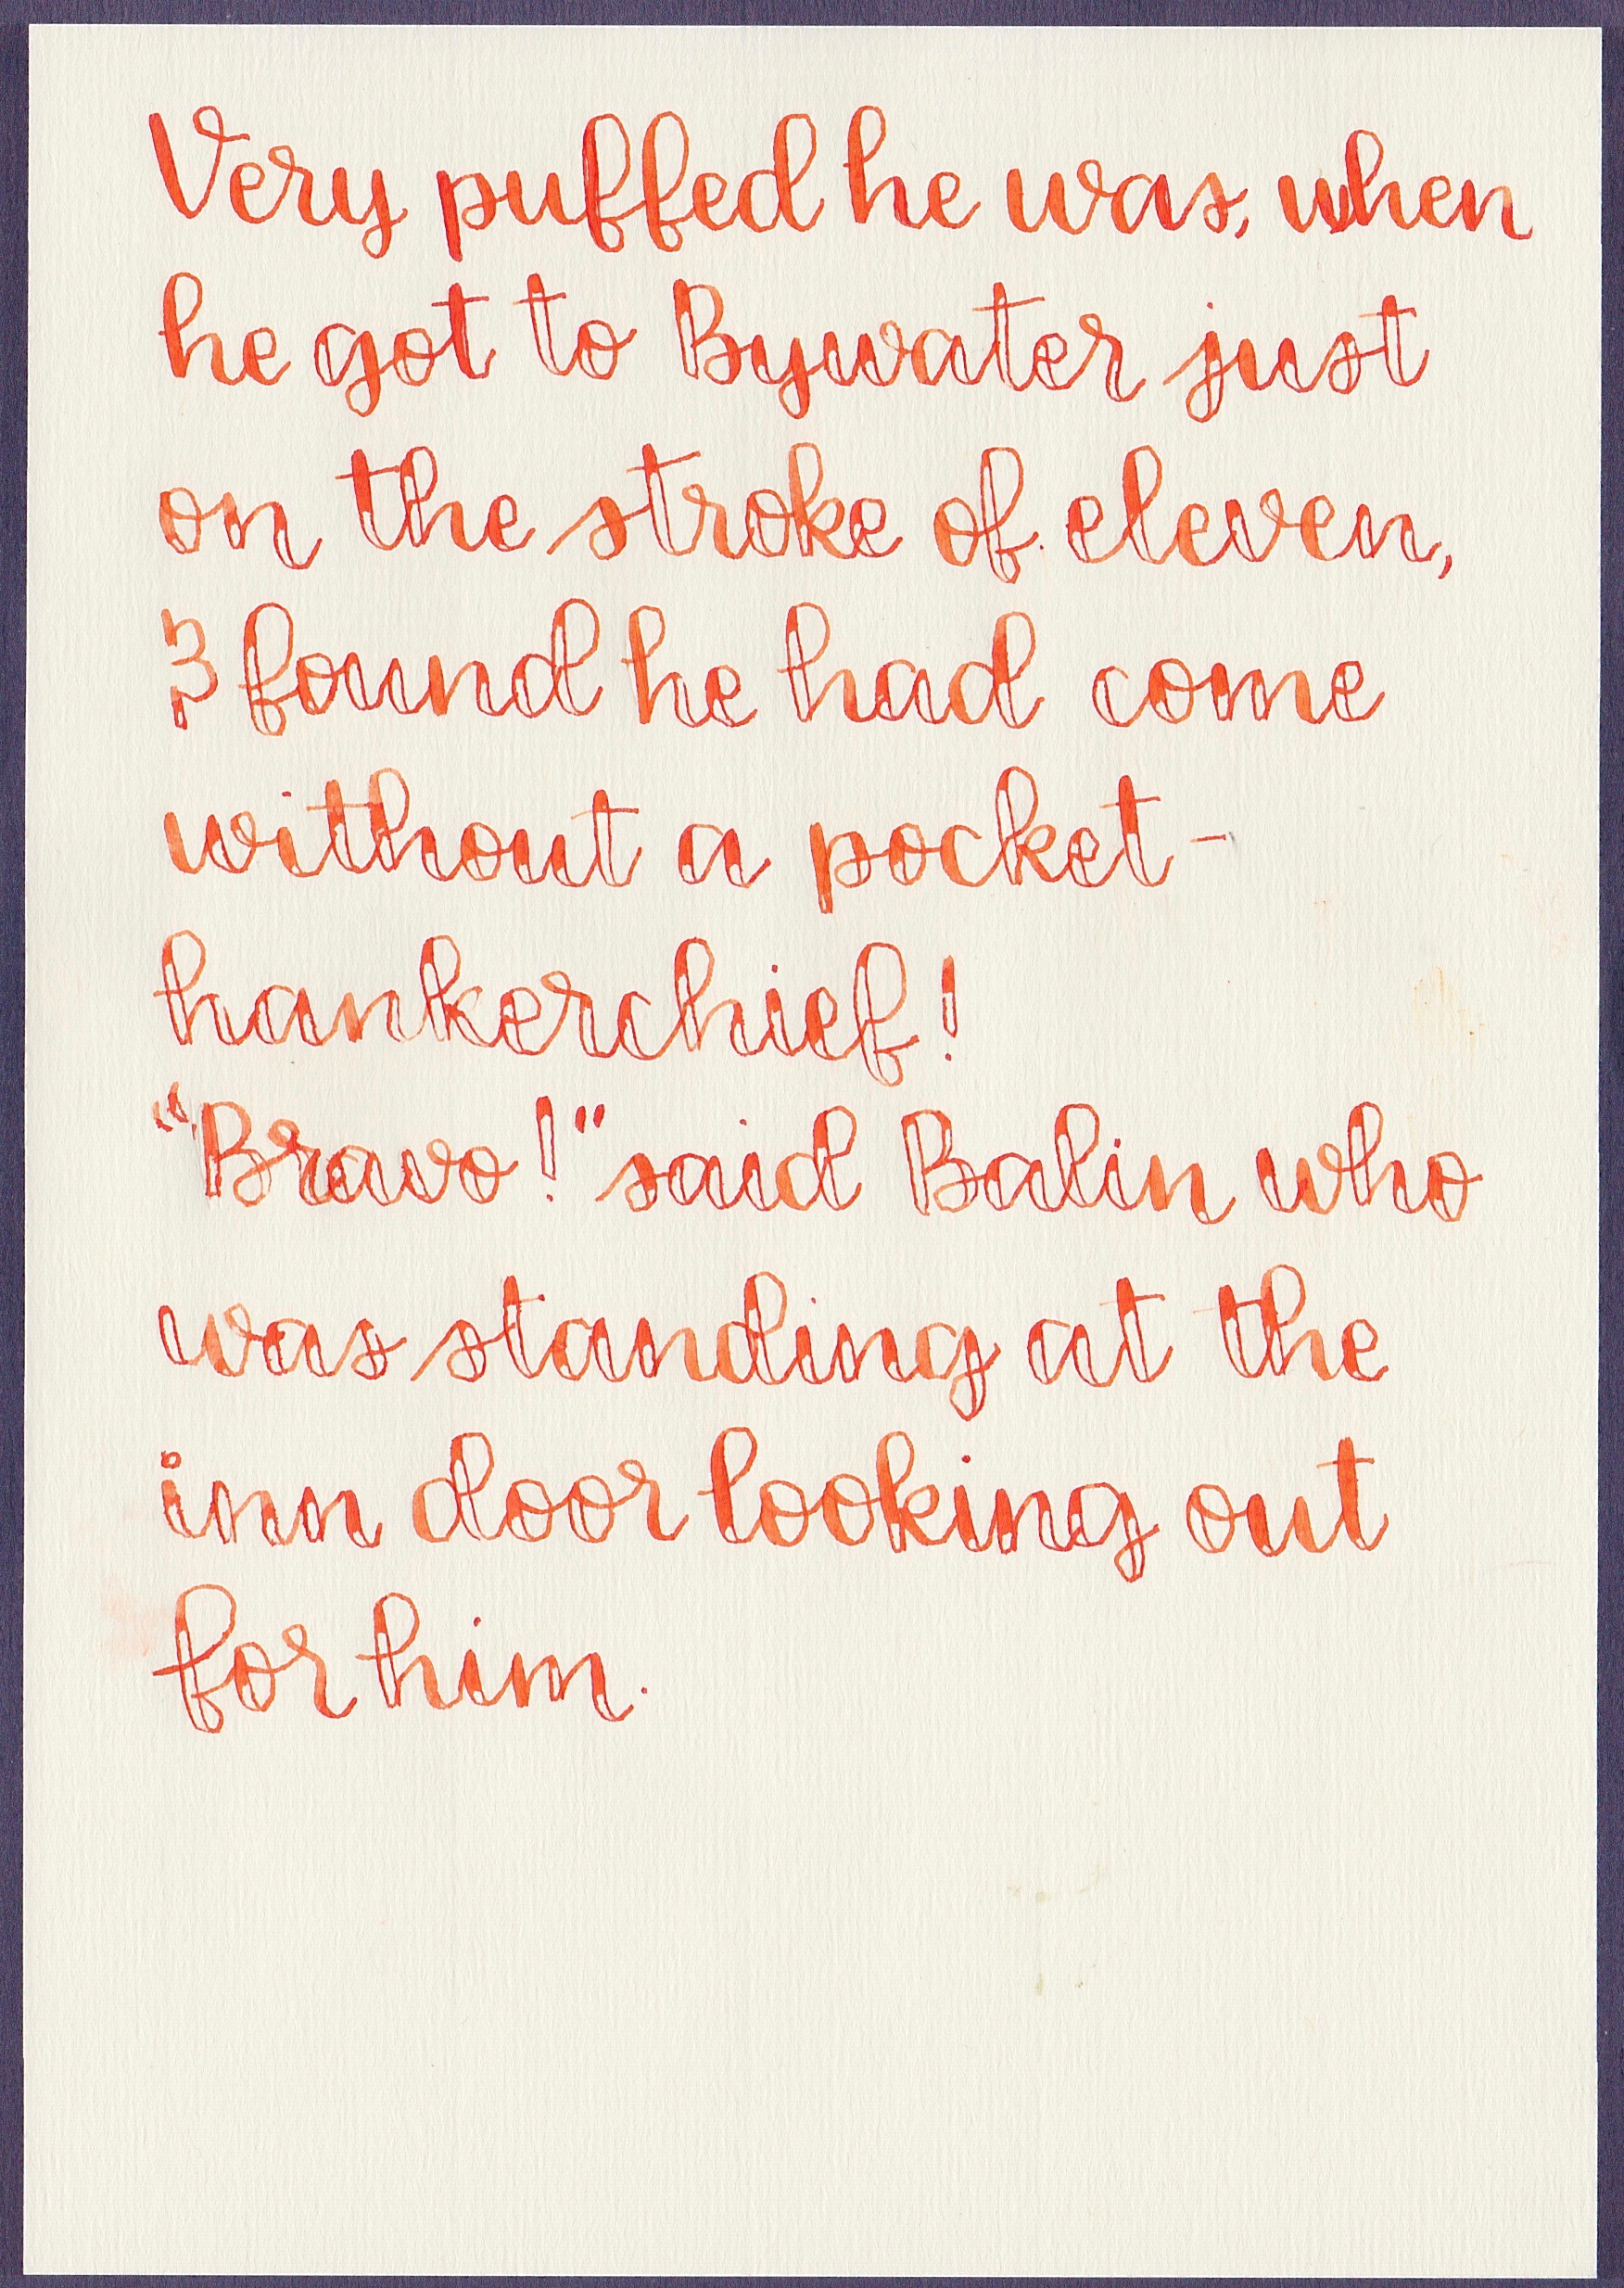 Very puffed he was, when
he got to Bywater just
on the stroke of eleven,
& found he had come
without a pocket-
hankerchief!
“Bravo!” said Balin who
was standing at the
inn door looking out
for him.